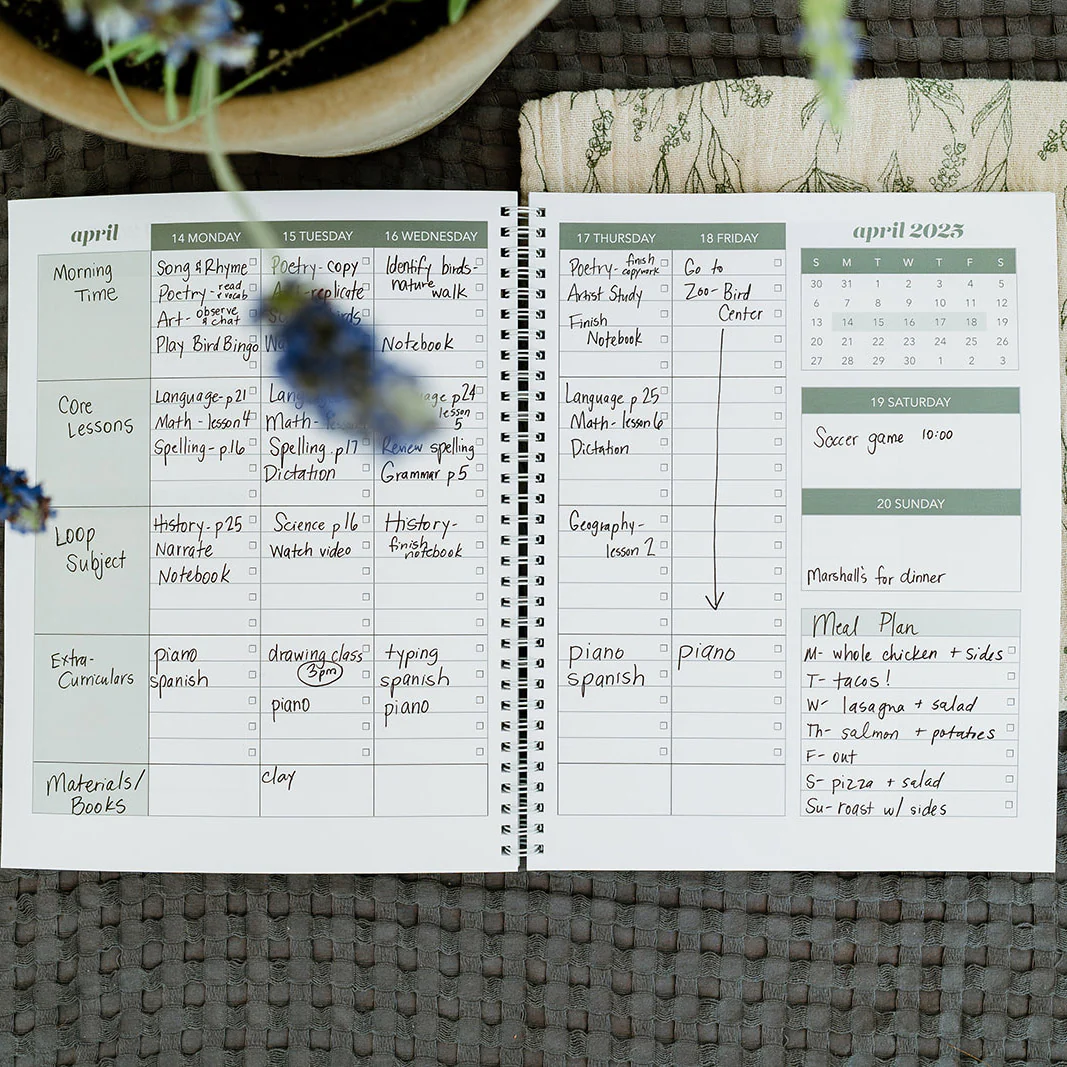 april
14 MONDAY
15 TUESDAY
16 WEDNESDAY
Morning
Time
Song & Rhyme
Poetry - read
& vocab
Art - observe
& chat
Play Bird Bingo
Poetry - copy
replicate
Identify birds -
nature
walk
Notebook
Core
Lessons
Language - p21
Math - lesson 4
Spelling - p.16
Math -
Spelling . p17
Dictation
p24
lesson
5
Review spelling
Grammar p5
Loop
Subject
History - p25
Narrate
Notebook
Science p16
Watch video
History -
finish
notebook
Extra-
Curriculars
piano
spanish
drawing class
3pm
piano
typing
spanish
piano
Materials/
Books
clay
17 THURSDAY
18 FRIDAY
Poetry - finish
copywork
Artist Study
Finish
Notebook
Go to
Zoo - Bird
Center
Language p25
Math - lesson 6
Dictation
Geography -
lesson 2
piano
spanish
piano
april 2025
S M T W T F S
30 31 1 2 3 4 5
6 7 8 9 10 11 12
13 14 15 16 17 18 19
20 21 22 23 24 25 26
27 28 29 30 1 2 3
19 SATURDAY
Soccer game 10:00
20 SUNDAY
Marshall's for dinner
Meal Plan
M- whole chicken + sides
T- tacos!
W- lasagna + salad
Th- salmon + potatoes
F- out
S- pizza + salad
Su- roast w/ sides